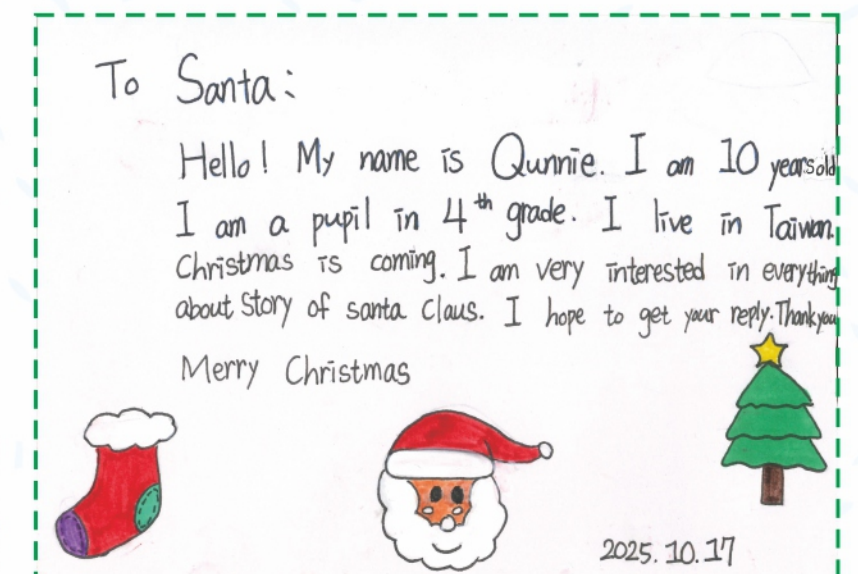 To Santa:
Hello! My name is Qunnie. I am 10 years old
I am a pupil in 4th grade. I live in Taiwan.
Christmas is coming. I am very interested in everything
about Story of santa Claus. I hope to get your reply. Thank you
Merry Christmas
2025.10.17